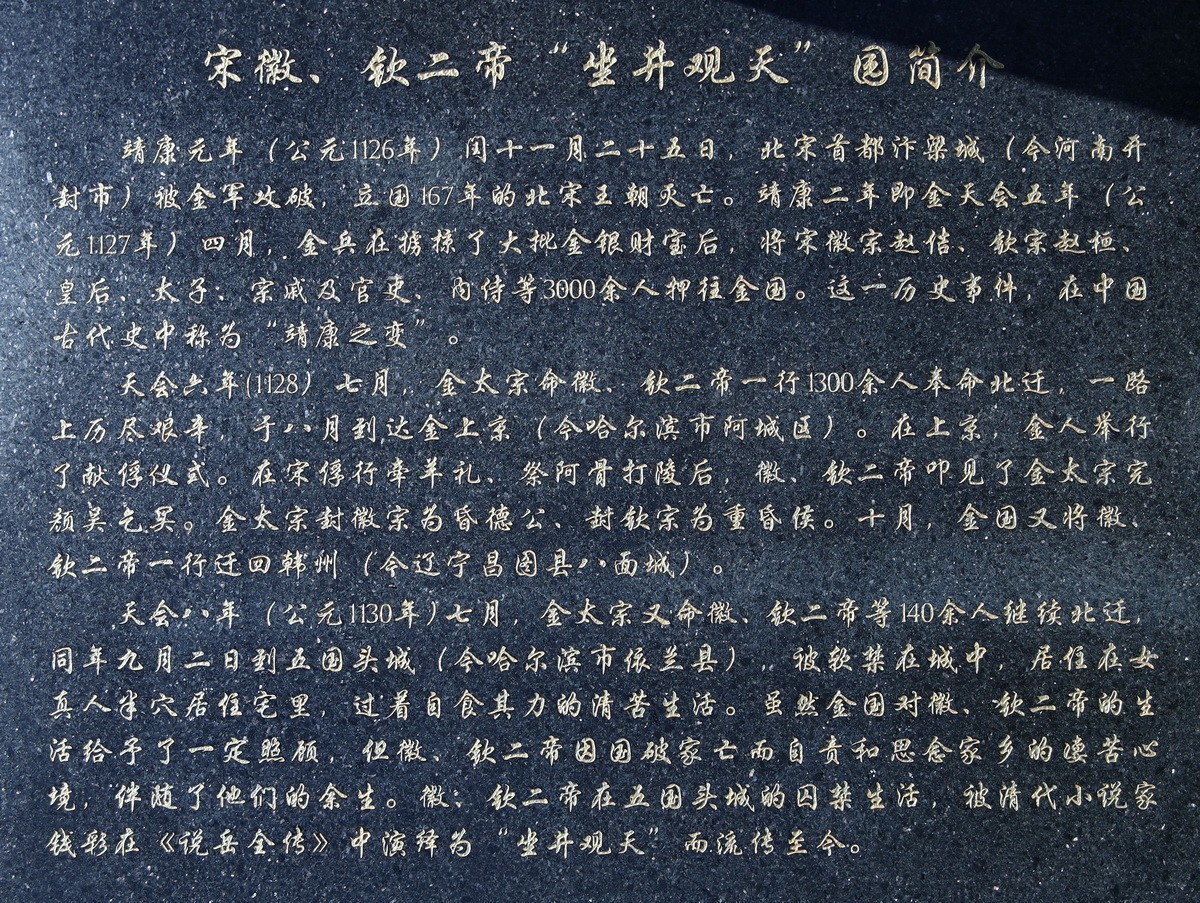 宋徽、钦二帝“坐井观天”园简介
靖康元年（公元1126年）闰十一月二十五日，北宋首都汴梁城（今河南开
封市）被金军攻破，立国167年的北宋王朝灭亡。靖康二年即金天会五年（公
元1127年）四月，金兵在掳掠了大批金银财宝后，将宋徽宗赵佶、钦宗赵桓、
皇后、太子、宗戚及官吏、内侍等3000余人押往金国。这一历史事件，在中国
古代史中称为“靖康之变”。
天会六年(1128）七月，金太宗命徽、钦二帝一行1300余人奉命北迁，一路
上历尽艰辛，于八月到达金上京（今哈尔滨市阿城区）。在上京，金人举行
了献俘仪式。在宋俘行牵羊礼、祭阿骨打陵后，徽、钦二帝叩见了金太宗完
颜吴乞买。金太宗封徽宗为昏德公、封钦宗为重昏侯。十月，金国又将徽、
钦二帝一行迁回韩州（今辽宁昌图县八面城）。
天会八年（公元1130年）七月，金太宗又命徽、钦二帝等140余人继续北迁，
同年九月二日到五国头城（今哈尔滨市依兰县），被软禁在城中，居住在女
真人半穴居住宅里，过着自食其力的清苦生活。虽然金国对徽、钦二帝的生
活给予了一定照顾，但徽、钦二帝因国破家亡而自责和思念家乡的凄苦心
境，伴随了他们的余生。徽、钦二帝在五国头城的囚禁生活，被清代小说家
钱彩在《说岳全传》中演绎为“坐井观天”而流传至今。